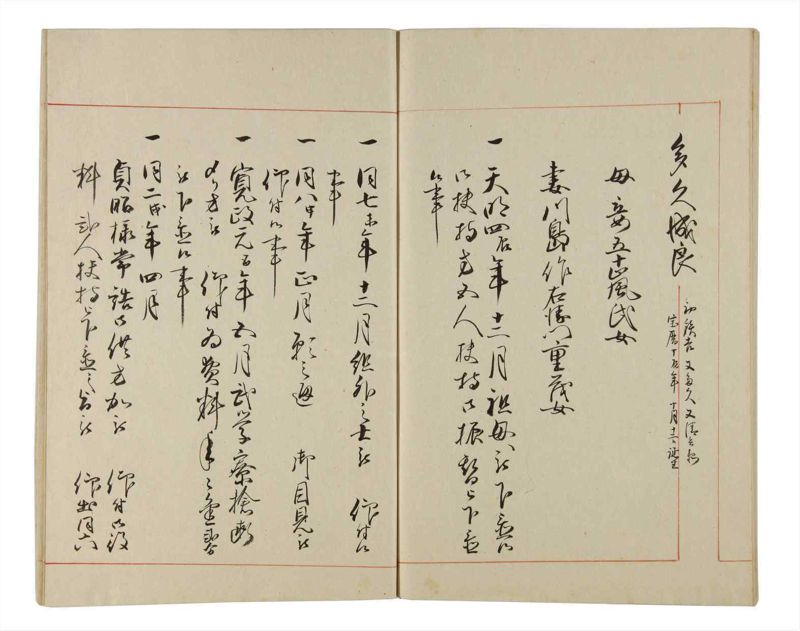 多久成良
初鉄吉 又多久 又清
宝暦丁丑年十月十二日誕生
母 妾五十嵐氏女
妻川島作右衛門重茂女
一 天明四辰年十二月祖母江下置候
御扶持方五人扶持御振替被下置
候事
一 同七未年十二月組外之士江 仰付候
事
一 同八申年正月願之通 御目見江
仰付候事
一 寛政元酉年五月武学寮
江 仰付為費料年々金
江下置候事
一 同二戌年四月
貞昭様常詰御供方加江 仰付御役
料 弐人扶持被下置之 江 仰出同六